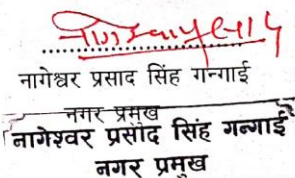 नागेश्वर प्रसाद सिंह गन्गाई
नगर प्रमुख
नागेश्वर प्रसाद सिंह गन्गाई
नगर प्रमुख